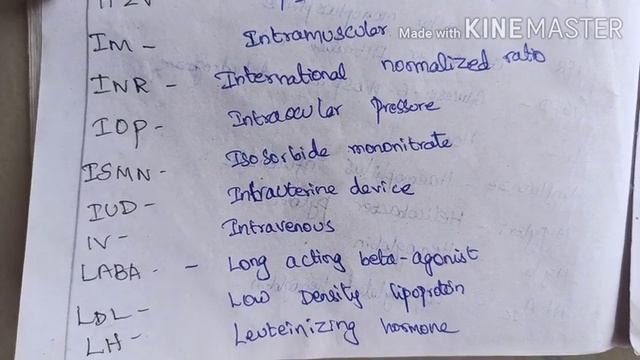 Made with KINEMASTER
IM - Intramuscular
INR - International normalized ratio
IOP - Intraocular pressure
ISMN - Isosorbide mononitrate
IUD - Intrauterine device
IV - Intravenous
LABA - - Long acting beta-agonist
LDL - Low Density lipoprotein
LH - Leuteinizing hormone